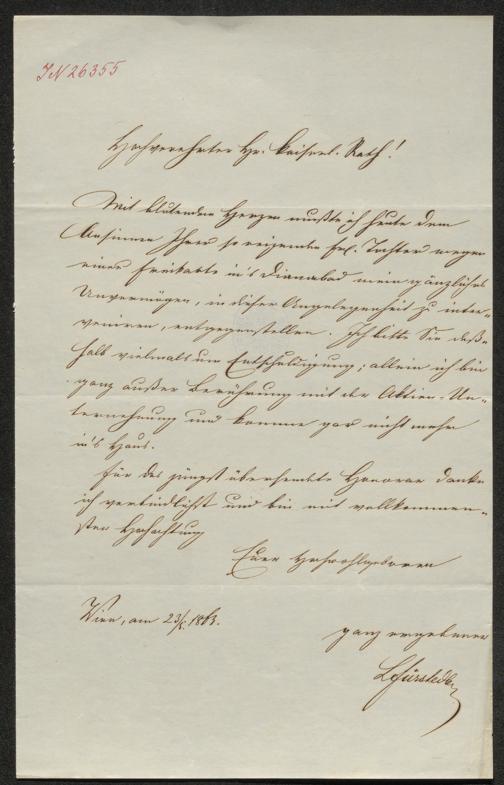 IN 26355
Hochverehrter Hr. kaiserl. Rath!
Mit blutendem Herzen mußte ich heute dem
Ansinnen Ihrer so reizenden Frl. Tochter wegen
einer Freikarte in's Dianabad mein gänzliches
Unvermögen, in dieser Angelegenheit zu inter-
veniren, entgegenstellen. Ich bitte Sie deß-
halb vielmals um Entschuldigung; allein ich bin
ganz außer Berührung mit der Aktien-Un-
ternehmung und komme gar nicht mehr
in's Haus.
Für das jüngst übersendete Honorar danke
ich verbindlichst und bin mit vollkommen-
ster Hochachtung
Euer Hochwohlgeboren
Wien, am 23/5. 1863.
ganz ergebener